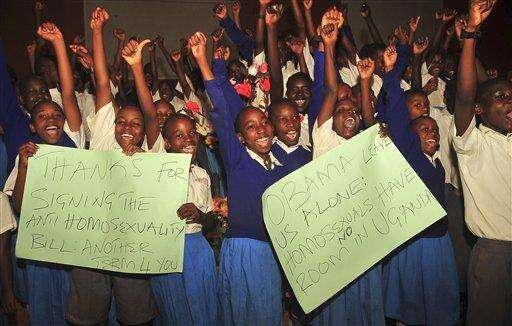 THANKS FOR
SIGNING THE
ANTI HOMOSEXUALITY
BILL: ANOTHER
TERM 4 YOU
OBAMA LEAVE
US ALONE:
HOMOSEXUALS HAVE
NO
ROOM IN UGANDA